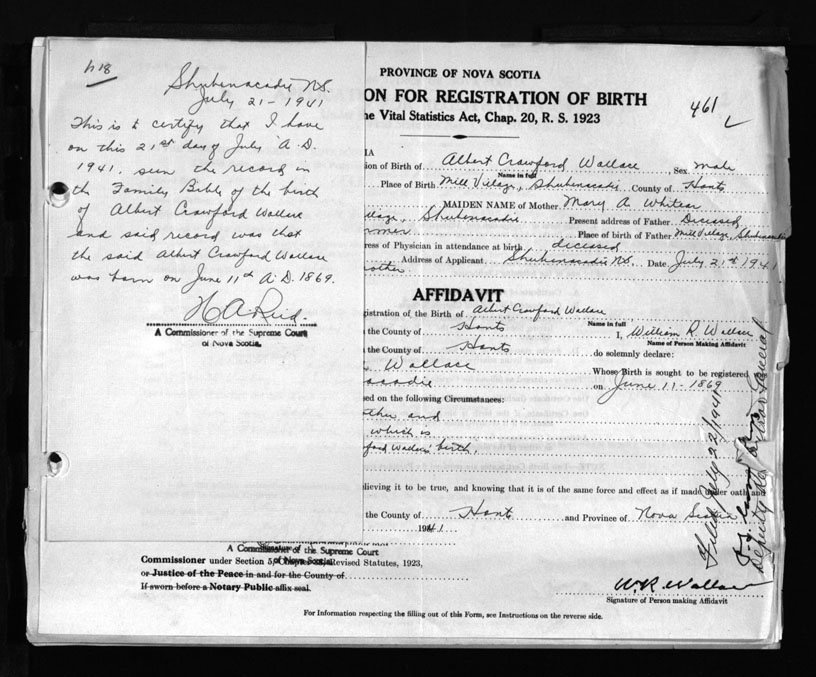 h18
Shubenacadie N.S.
July 21 - 1941
This is to certify that I have
on this 21st day of July A.D.
1941, seen the record in
the Family Bible of the birth
of Albert Crawford Wallace
and said record was that
the said Albert Crawford Wallace
was born on June 11th A.D. 1869.
H A Reid.
A Commissioner of the Supreme Court
of Nova Scotia.
PROVINCE OF NOVA SCOTIA
ON FOR REGISTRATION OF BIRTH
e Vital Statistics Act, Chap. 20, R. S. 1923
461
IA
ion of Birth of Albert Crawford Wallace Sex male
Name in full
Place of Birth Mill Village, Shubenacadie County of Hants
MAIDEN NAME of Mother Mary A
illage, Shubenacadie Present address of Father Deceased
Place of birth of Father Mill Village, Shubenacadie
ress of Physician in attendance at birth deceased
Address of Applicant Shubenacadie NS. Date July 21st 1941
rother
AFFIDAVIT
gistration of the Birth of Albert Crawford Wallace
Name in full
the County of Hants I, William R. Wallace
Name of Person Making Affidavit
the County of Hants do solemnly declare:
Wallace Whose Birth is sought to be registered
acadie on June 11 - 1869
ed on the following Circumstances:
other and
which is
ford Wallace's birth.
lieving it to be true, and knowing that it is of the same force and effect as if made under oath and
the County of Hants and Province of Nova Scotia
1941
A Commissioner of the Supreme Court
of Nova Scotia
Commissioner under Section 5, Revised Statutes, 1923,
or Justice of the Peace in and for the County of
If sworn before a Notary Public affix seal.
W.R. Wallace
Signature of Person making Affidavit
For Information respecting the filling out of this Form, see Instructions on the reverse side.
Filed July 22/1941
Deputy Registrar General